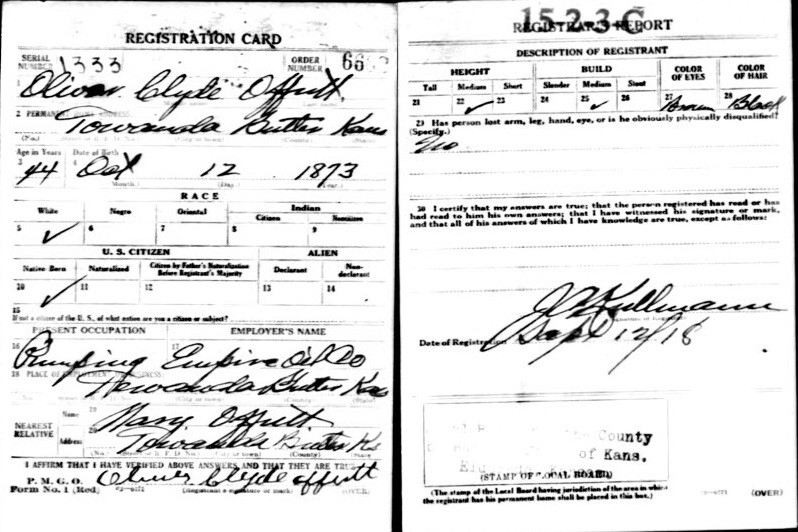 REGISTRATION CARD
SERIAL NUMBER 1333 ORDER NUMBER 66
1 Oliver Clyde Offutt
2 PERMANENT HOME ADDRESS:
Towanda Butler Kans
(No.)
Age in Years Date of Birth
3 44 4 Oct 12 1873
(Month.) (Day.) (Year.)
RACE
White Negro Oriental Indian
Citizen Noncitizen
5 ✓ 6 7 8 9
U. S. CITIZEN ALIEN
Native Born Naturalized Citizen by Father's Naturalization Before Registrant's Majority Declarant Non-declarant
10 ✓ 11 12 13 14
15
If not a citizen of the U. S., of what nation are you a citizen or subject?
PRESENT OCCUPATION EMPLOYER'S NAME
16 Pumping 17 Empire Oil Co
18 PLACE OF EMPLOYMENT OR BUSINESS:
Towanda Butler Kans
(No.) (City or town) (County) (State)
NEAREST RELATIVE
Name 19 Mary Offutt
Address 20 Towanda Butler Ks
(No.) (City or town) (County) (State)
I AFFIRM THAT I HAVE VERIFIED ABOVE ANSWERS AND THAT THEY ARE TRUE
P. M. G. O.
Form No. 1 (Red) Oliver Clyde Offutt
(Registrant's signature or mark) (OVER)
15-2-3-C
REGISTRAR'S REPORT
DESCRIPTION OF REGISTRANT
HEIGHT BUILD COLOR OF EYES COLOR OF HAIR
Tall Medium Short Slender Medium Stout
21 22 ✓ 23 24 25 ✓ 26 27 Brown 28 Black
29 Has person lost arm, leg, hand, eye, or is he obviously physically disqualified?
(Specify.)
No
30 I certify that my answers are true; that the person registered has read or has
had read to him his own answers; that I have witnessed his signature or mark,
and that all of his answers of which I have knowledge are true, except as follows:
Kullmann
Date of Registration Sept 12/18
County
of Kans.
(STAMP OF LOCAL BOARD)
(The stamp of the Local Board having jurisdiction of the area in which
the registrant has his permanent home shall be placed in this box.)
(OVER)